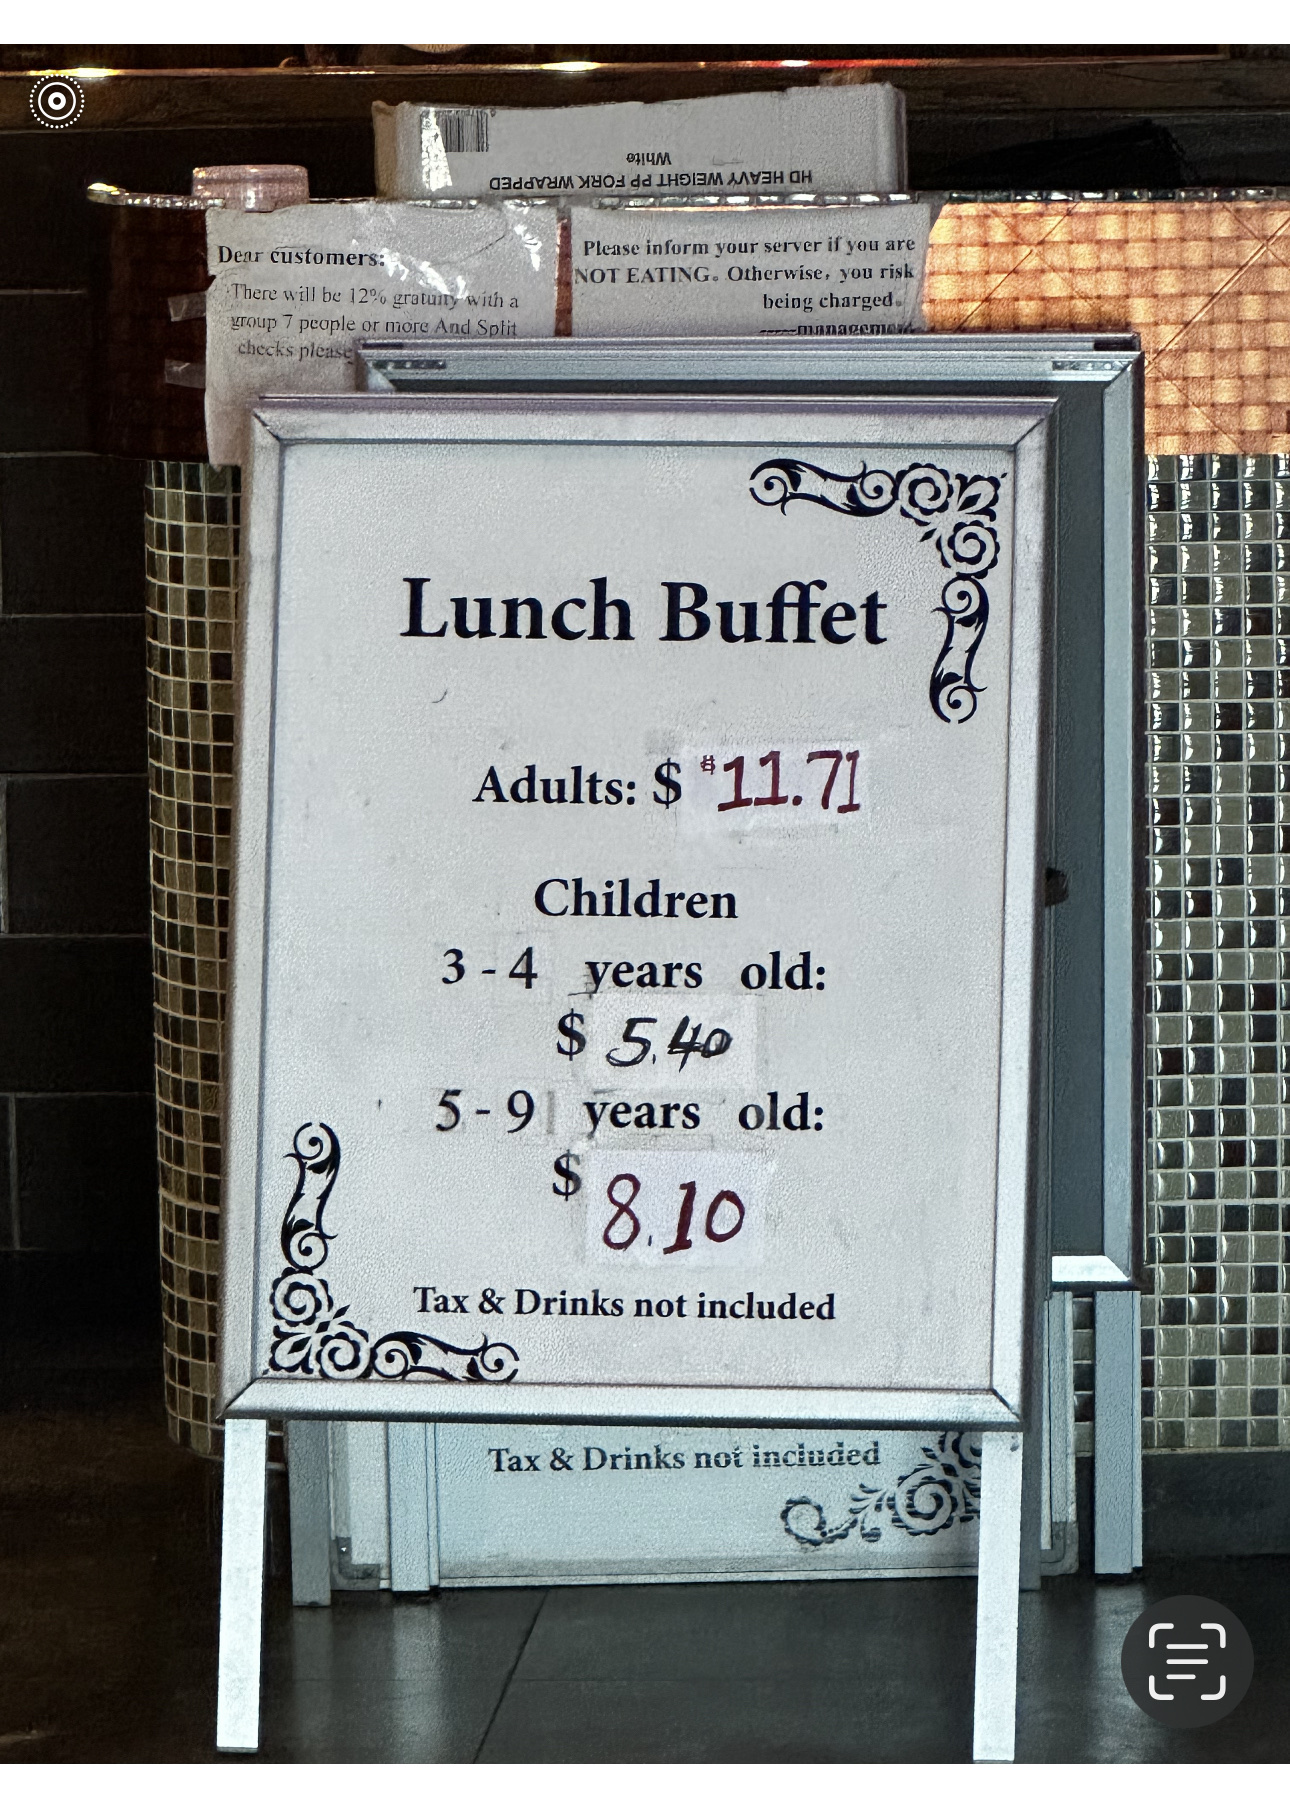 HD HEAVY WEIGHT PP FORK WRAPPED
White
Dear customers:
There will be 12% gratuity with a
group 7 people or more And Split
checks please
Please inform your server if you are
NOT EATING。Otherwise, you risk
being charged。
-----management
Lunch Buffet
Adults: $ $11.71
Children
3 - 4 years old:
$ 5.40
5 - 9 years old:
$ 8.10
Tax & Drinks not included
Tax & Drinks not included